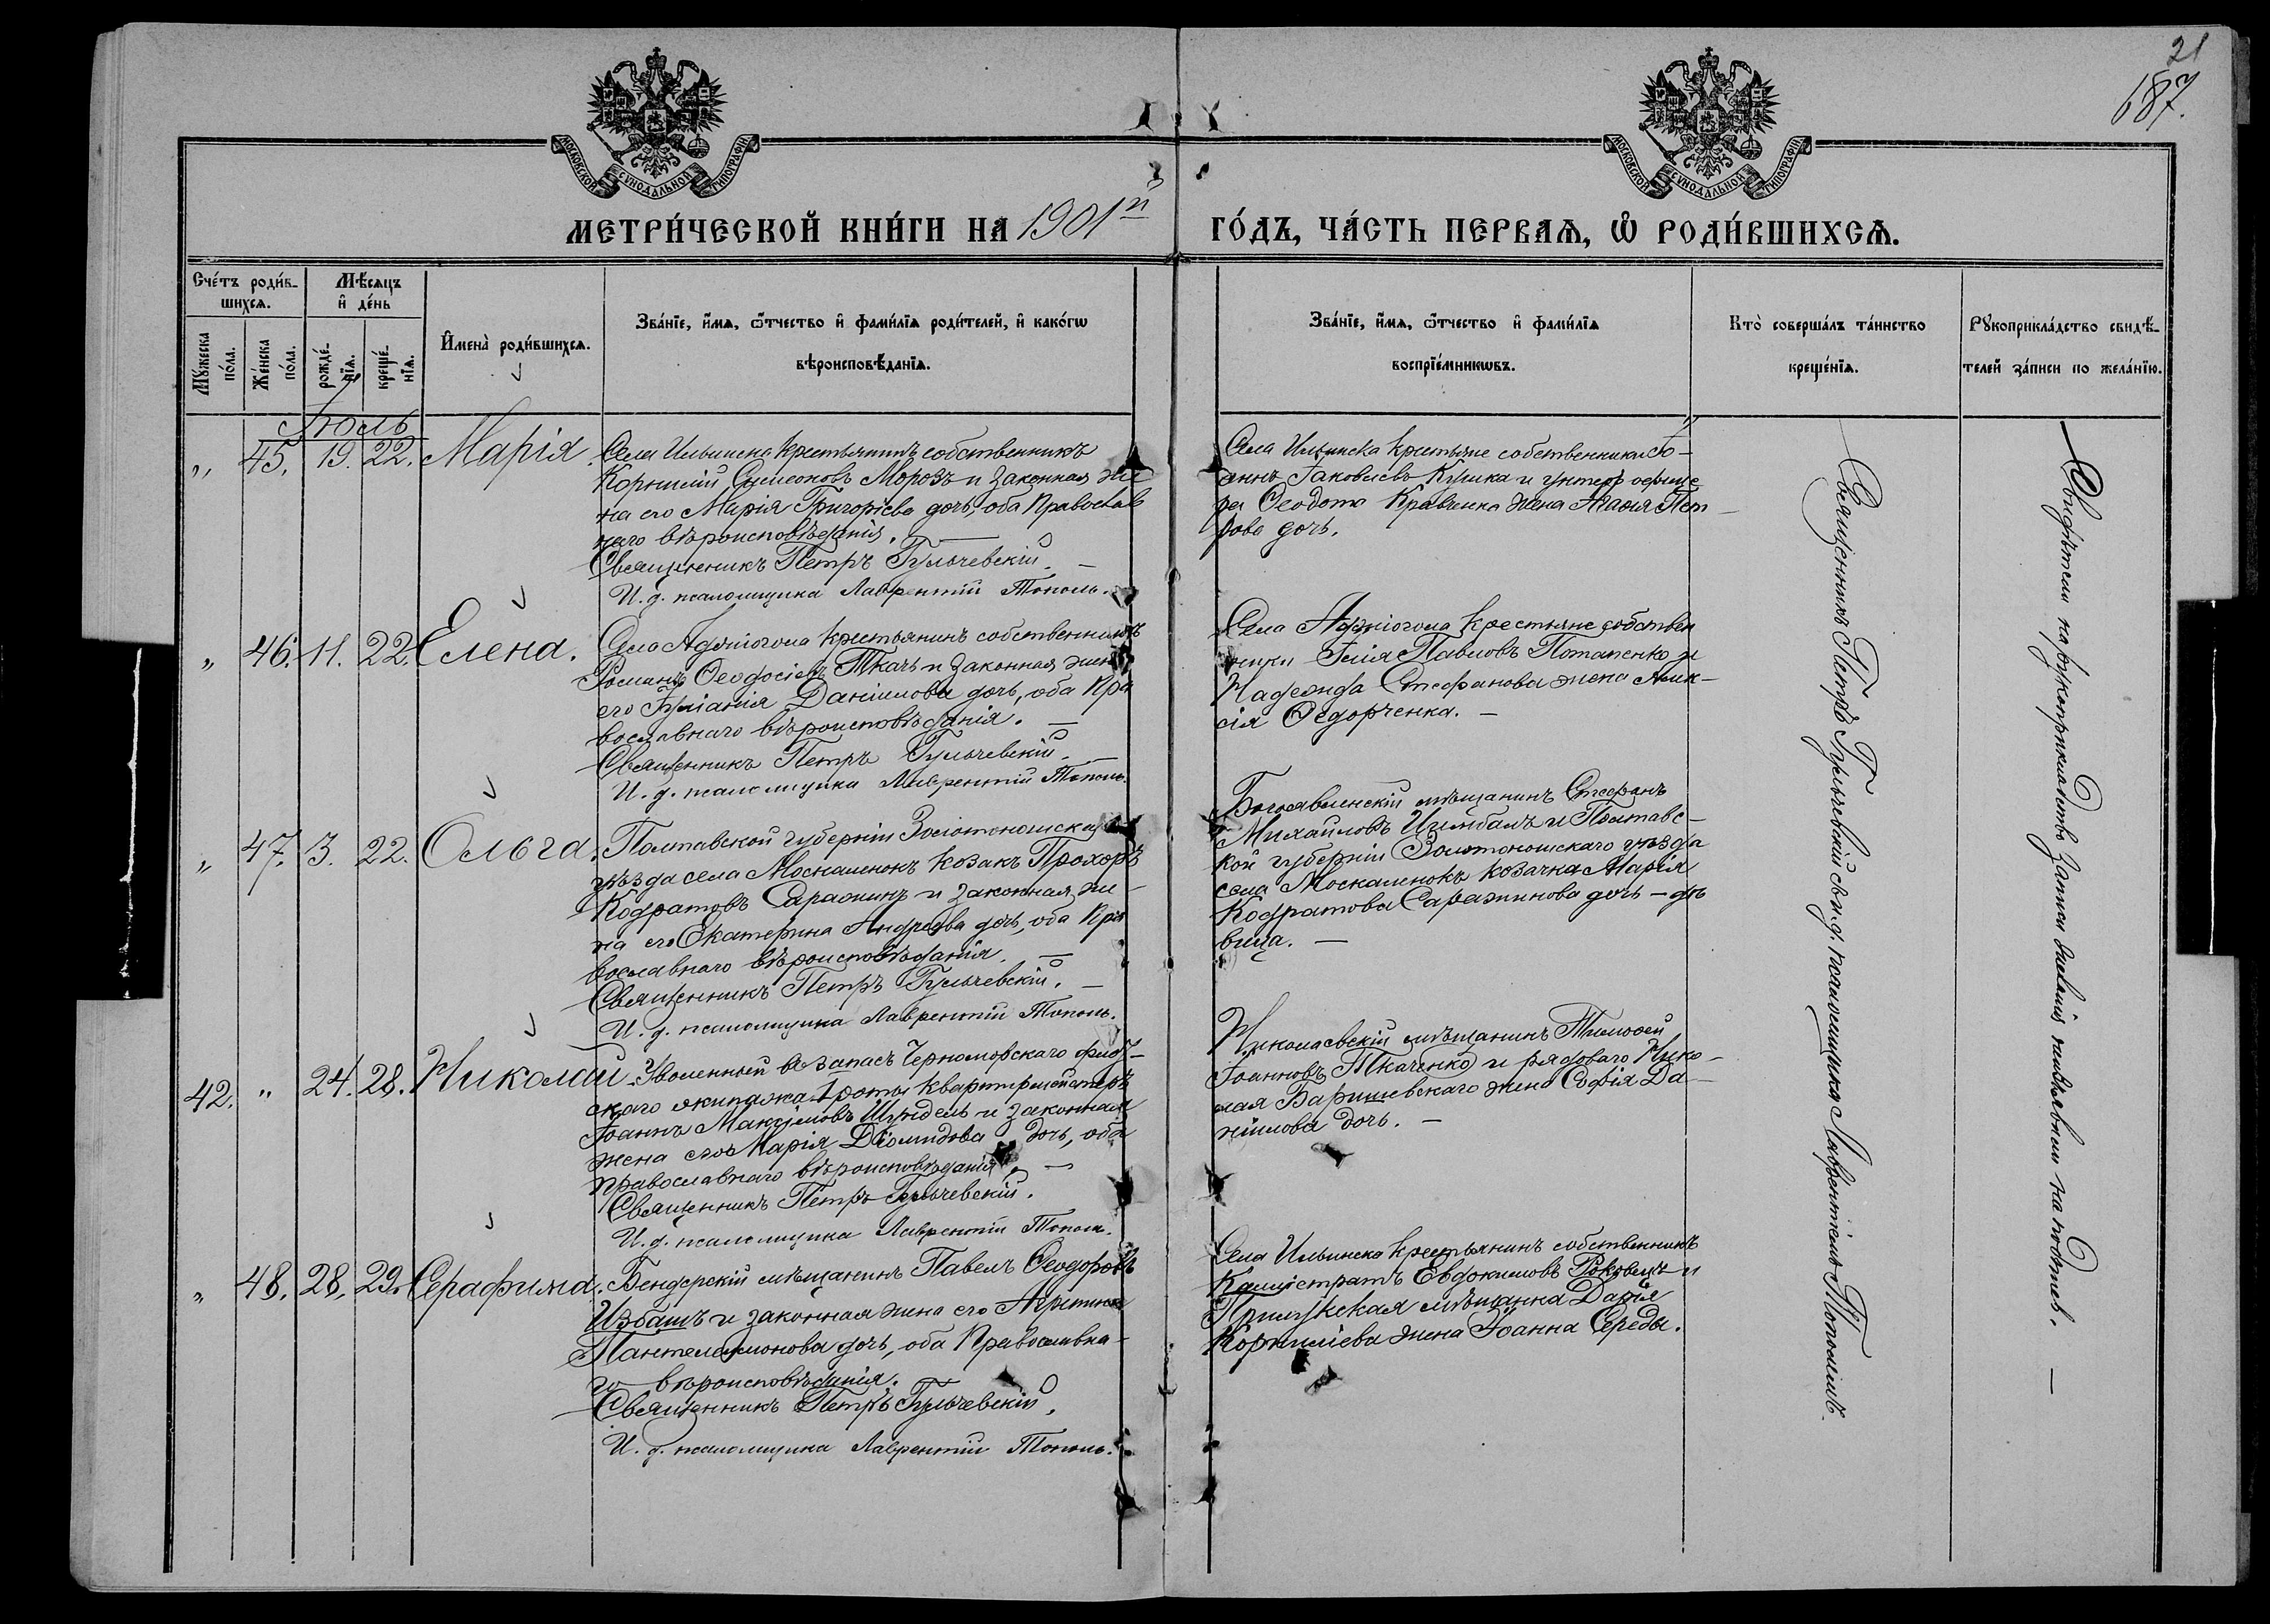 21
687.
МОСКОВСКОЙ СѴНОДАЛЬНОЙ ТИПОГРАФІИ
МОСКОВСКОЙ СѴНОДАЛЬНОЙ ТИПОГРАФІИ
МЕТРИ́ЧЕСКОЙ КНИ́ГИ НА 1901й ГО́ДЪ, ЧА́СТЬ ПЕРВАѦ, Ѡ҆ РОДИ́ВШИХСѦ.
Сче́тъ роди́в-
шихсѧ.
Мѣ́сяцъ
и҆ де́нь
Мꙋ́жеска
по́ла.
Же́нска
по́ла.
рожде́-
нїѧ.
креще́-
нїѧ.
И҆мена̀ роди́вшихсѧ.
Зва́нїе, и҆́мѧ, ѻ҆́тчество и҆ фами́лїѧ роди́телей, и҆ како́гѡ
вѣроисповѣ́данїѧ.
Зва́нїе, и҆́мѧ, ѻ҆́тчество и҆ фами́лїѧ
воспрїе́мникѡвъ.
Кто̀ соверша́лъ та́инство
креще́нїѧ.
Рꙋкоприкла́дство свидѣ́-
телей за́писи по жела́нїю.
Іюль
„ 45. 19. 22. Марія.
Села Ильинска крестьянинъ собственникъ
Корнилій Симеоновъ Морозъ и законная же
на его Марія Григоріева дочь, оба Православ
наго вѣроисповѣданія.
Священникъ Петръ Гульчевскій. —
И. д. псаломщика Лаврентій Тополь.
Села Ильинска крестьяне собственники Іо-
аннъ Іаковлевъ Кушка и унтеръ офице
ра Ѳеодота Кравченка жена Агаѳія Пет
рова дочь.
„ 46. 11. 22. Елена.
Села Аджіогола крестьянинъ собственникъ
Романъ Ѳеодосіевъ Ткачъ и законная жена
его Іуліанія Даніилова дочь, оба Пра
вославнаго вѣроисповѣданія. —
Священникъ Петръ Гульчевскій. —
И. д. псаломщика Лаврентій Тополь.
Села Аджіогола крестьяне собствен
ники Илія Павловъ Потапенко и
Надежда Стефанова жена Алек-
сія Ѳедорченка. —
„ 47. 3. 22. Ольга.
Полтавской губерніи Золотоношскаго
уѣзда села Москаленокъ козакъ Прохоръ
Кодратовъ Саражинъ и законная же
на его Екатерина Андреева дочь, оба Пра
вославнаго вѣроисповѣданія. —
Священникъ Петръ Гульчевскій. —
И. д. псаломщика Лаврентій Тополь.
Богоявленскій мѣщанинъ Стефанъ
Михайловъ Цимбалъ и Полтавс-
кой губерніи Золотоношскаго уѣзда
села Москаленокъ козачка Марія
Кодратова Саражинова дочь – дѣ
вица. —
42. „ 24. 28. Николай.
Уволенный въ запасъ Черноморскаго флот-
скаго экипажа 1 роты квартирмейстеръ
Іоаннъ Максимовъ Шундель и законная
жена его Марія Діомидова дочь, оба
православнаго вѣроисповѣданія. —
Священникъ Петръ Гульчевскій.
И. д. псаломщика Лаврентій Тополь.
Николаевскій мѣщанинъ Тимоѳей
Іоанновъ Ткаченко и рядоваго Нико-
лая Баришевскаго жена Софія Да-
ніилова дочь. —
„ 48. 28. 29. Серафима.
Бендерскій мѣщанинъ Павелъ Ѳеодоровъ
Избашъ и законная жена его
Пантелеимонова дочь, оба Православна-
го вѣроисповѣданія.
Священникъ Петръ Гульчевскій.
И. д. псаломщика Лаврентій Тополь.
Села Ильинска крестьянинъ собственникъ
Каллістратъ Евдокимовъ Раковецъ и
Прилукская мѣщанка Дарія
Корниліева жена Іоанна Середы.
Священникъ Петръ Гульчевскій съ и. д. псаломщика Лаврентіемъ Тополемъ.
Свидѣтели на рукоприкладство записи желанія не изъявили.